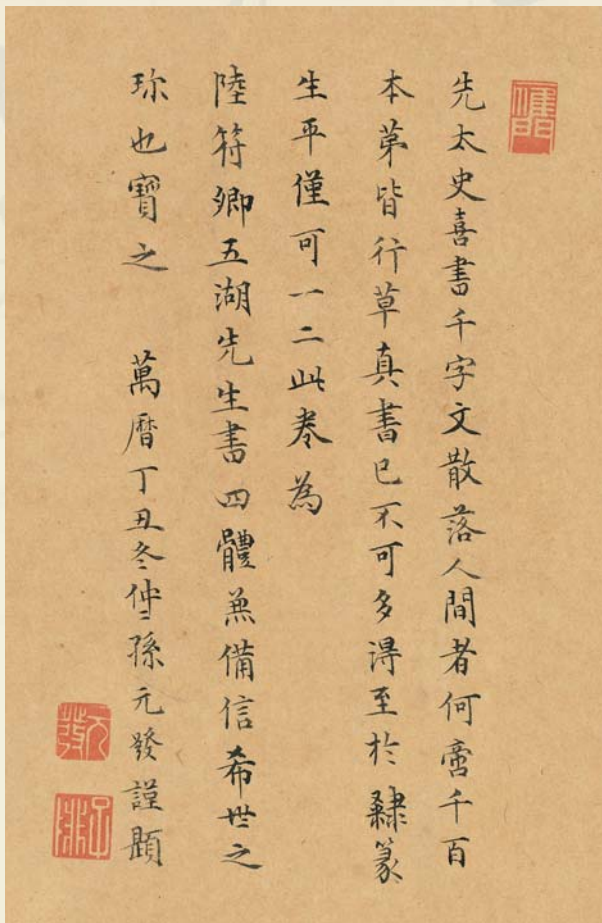 先太史喜書千字文散落人間者何啻千百
本第皆行草真書已不可多得至於隸篆
生平僅可一二此卷為
陸符卿五湖先生書四體兼備信希世之
珍也寶之 萬曆丁丑冬仲孫元發謹題
元發